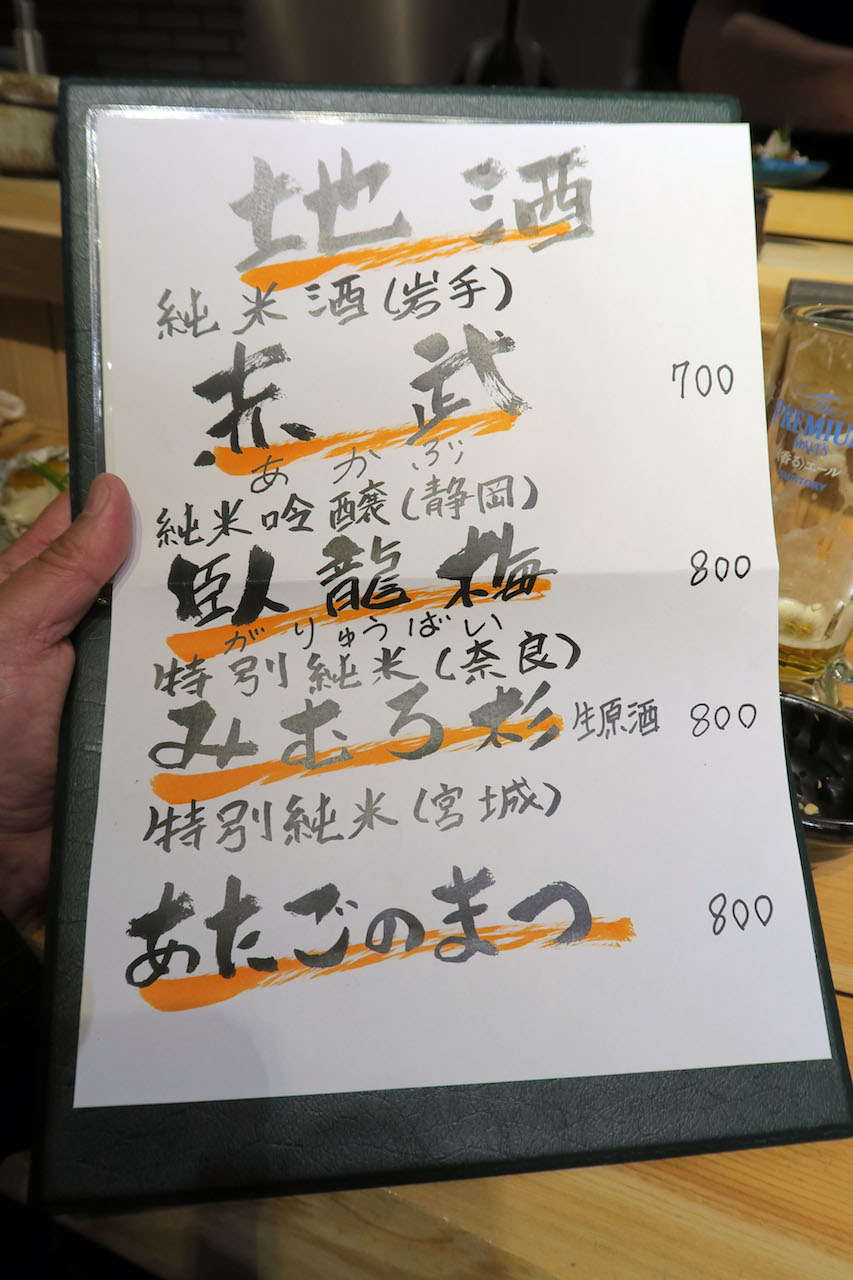 地酒
純米酒(岩手)
赤武 700
あかぶ
純米吟醸(静岡)
臥龍梅 800
がりゅうばい
特別純米(奈良)
みむろ杉 生原酒 800
特別純米(宮城)
あたごのまつ 800
The
PREMIUM
MALT'S
〈香る〉エール
SUNTORY